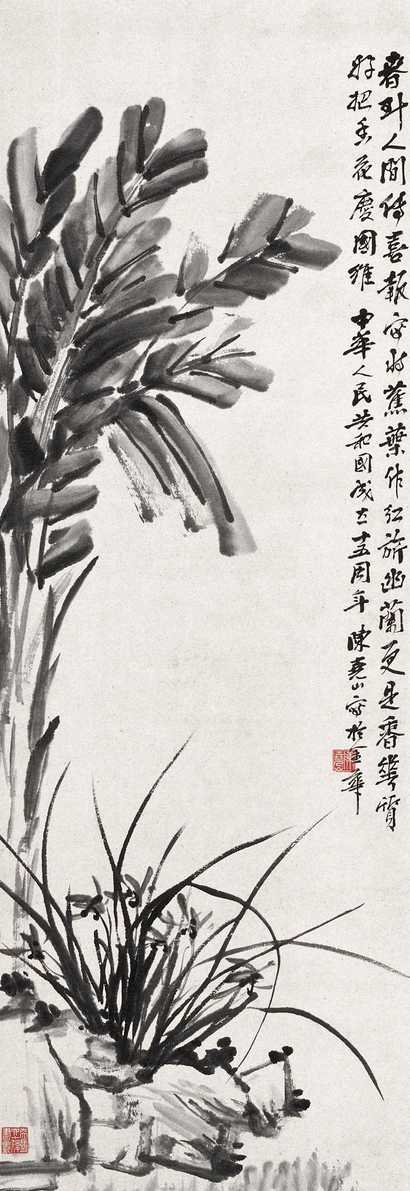 春到人間傳喜報安將蕉葉作紅旂幽蘭更是香無質
好把香花慶國雄 中華人民共和國成立十五周年 陳堯山寫於金華